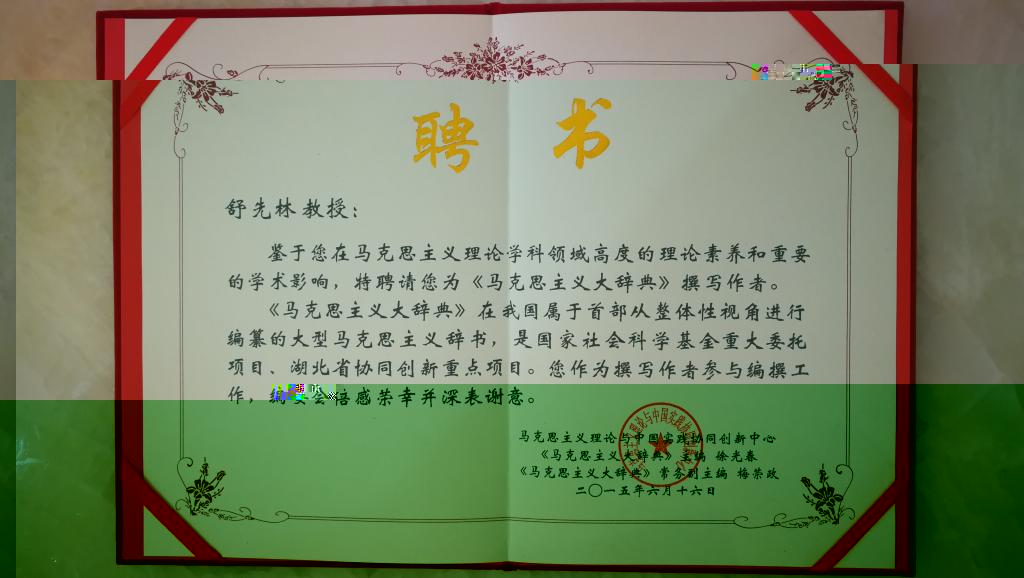 聘 书
舒先林教授：
鉴于您在马克思主义理论学科领域高度的理论素养和重要
的学术影响，特聘请您为《马克思主义大辞典》撰写作者。
《马克思主义大辞典》在我国属于首部从整体性视角进行
编纂的大型马克思主义辞书，是国家社会科学基金重大委托
项目、湖北省协同创新重点项目。您作为撰写作者参与编撰工
作，感荣幸并深表谢意。
马克思主义理论与中国实践协同创新中心
《马克思主义大辞典》主编 徐光春
《马克思主义大辞典》常务副主编 梅荣政
二〇一五年六月十六日